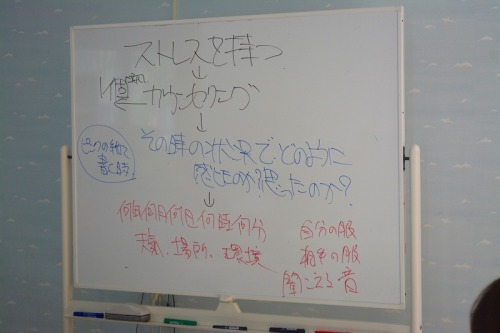 ストレスを持つ
↓
カウンセリング
↓
その時の状況でどのように
感じたのか?思ったのか?
↓
何年何月何日何時何分
天気、場所、環境
自分の服
相手の服
聞こえる音